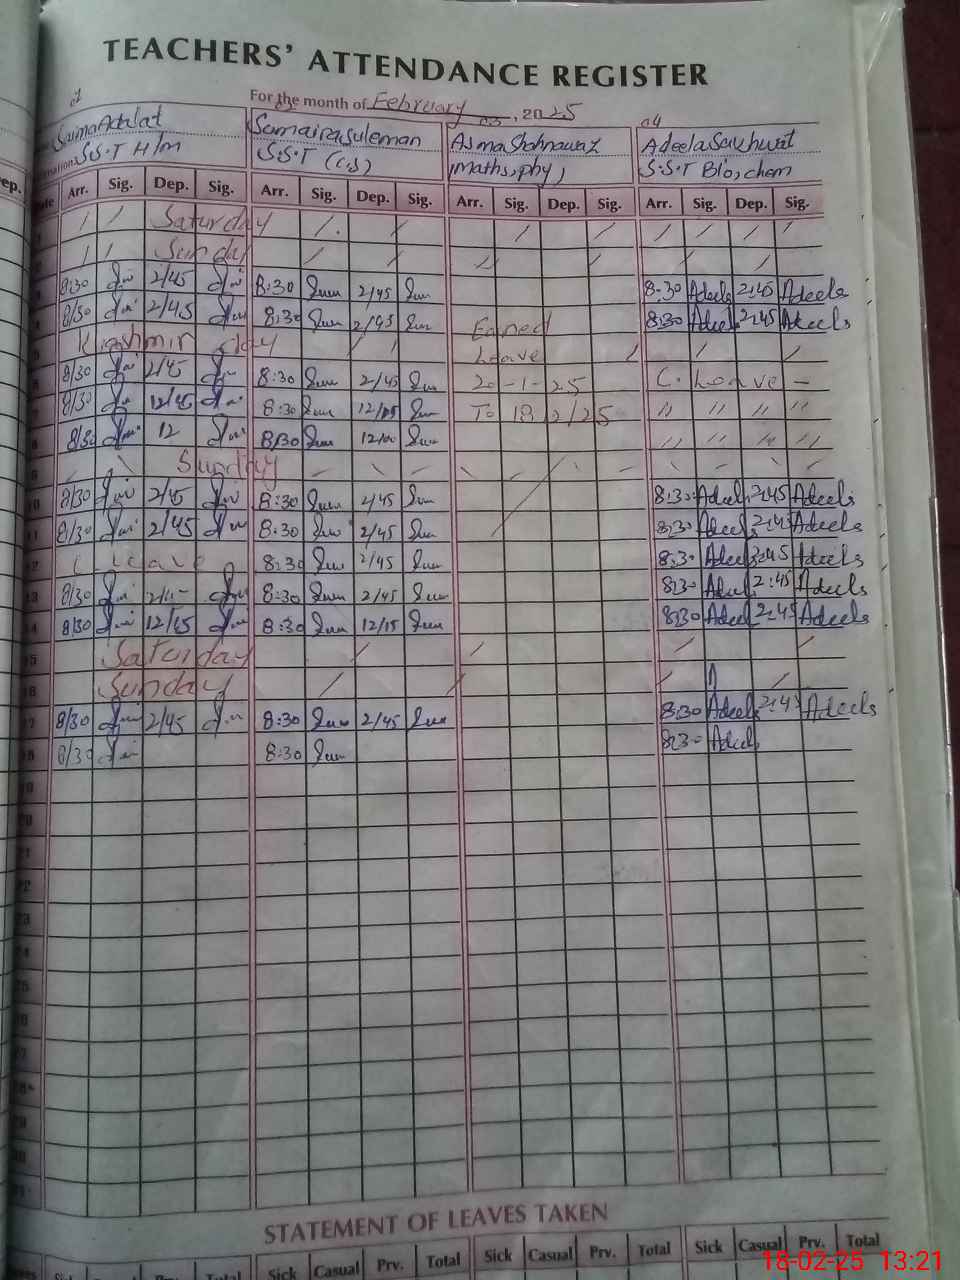 TEACHERS' ATTENDANCE REGISTER
For the month of February, 2025
01 Saima Adalat
S.S.T H/m
Sumaira Suleman
S.S.T (C.S)
03 Asma Shahnawaz
Maths, phy,
04 Adeela Sakhwat
S.S.T Bio, chem
Arr. Sig. Dep. Sig. Arr. Sig. Dep. Sig. Arr. Sig. Dep. Sig. Arr. Sig. Dep. Sig.
Saturday
Sunday
8/30 2/45 8:30 2/45 8:30 Adeels 2:45 Adeels
8/30 2/45 8:30 2/45 Earned 8:30 Adeel 2:45 Adeels
Kashmir day Leave
8/30 2/45 8:30 2/45 20-1-25 C. Leave -
8/30 12/45 8:30 To 18/2/25 " " " "
8/30 12 8/30 12/00 " " " "
Sunday
10 8/30 2/45 8:30 2/45 8:30 Adeels 2:45 Adeels
11 8/30 2/45 8:30 2/45 8:30 Adeels 2:45 Adeels
Leave 8:30 2/45 8:30 Adeels 2:45 Adeels
13 8/30 8:30 2/45 8:30 Adeel 2:45 Adeels
14 8/30 12/45 8:30 12/15 8:30 Adeel 2:45 Adeels
15 Saturday
16 Sunday
17 8/30 2/45 8:30 2/45 8:30 Adeels 2:45 Adeels
18 8/30 8:30 8:30 Adeel
19
20
21
22
23
24
25
26
27
28
29
30
31
STATEMENT OF LEAVES TAKEN
Sick Casual Prv. Total Sick Casual Prv. Total Sick Casual Prv. Total Sick Casual Prv. Total
18-02-25 13:21